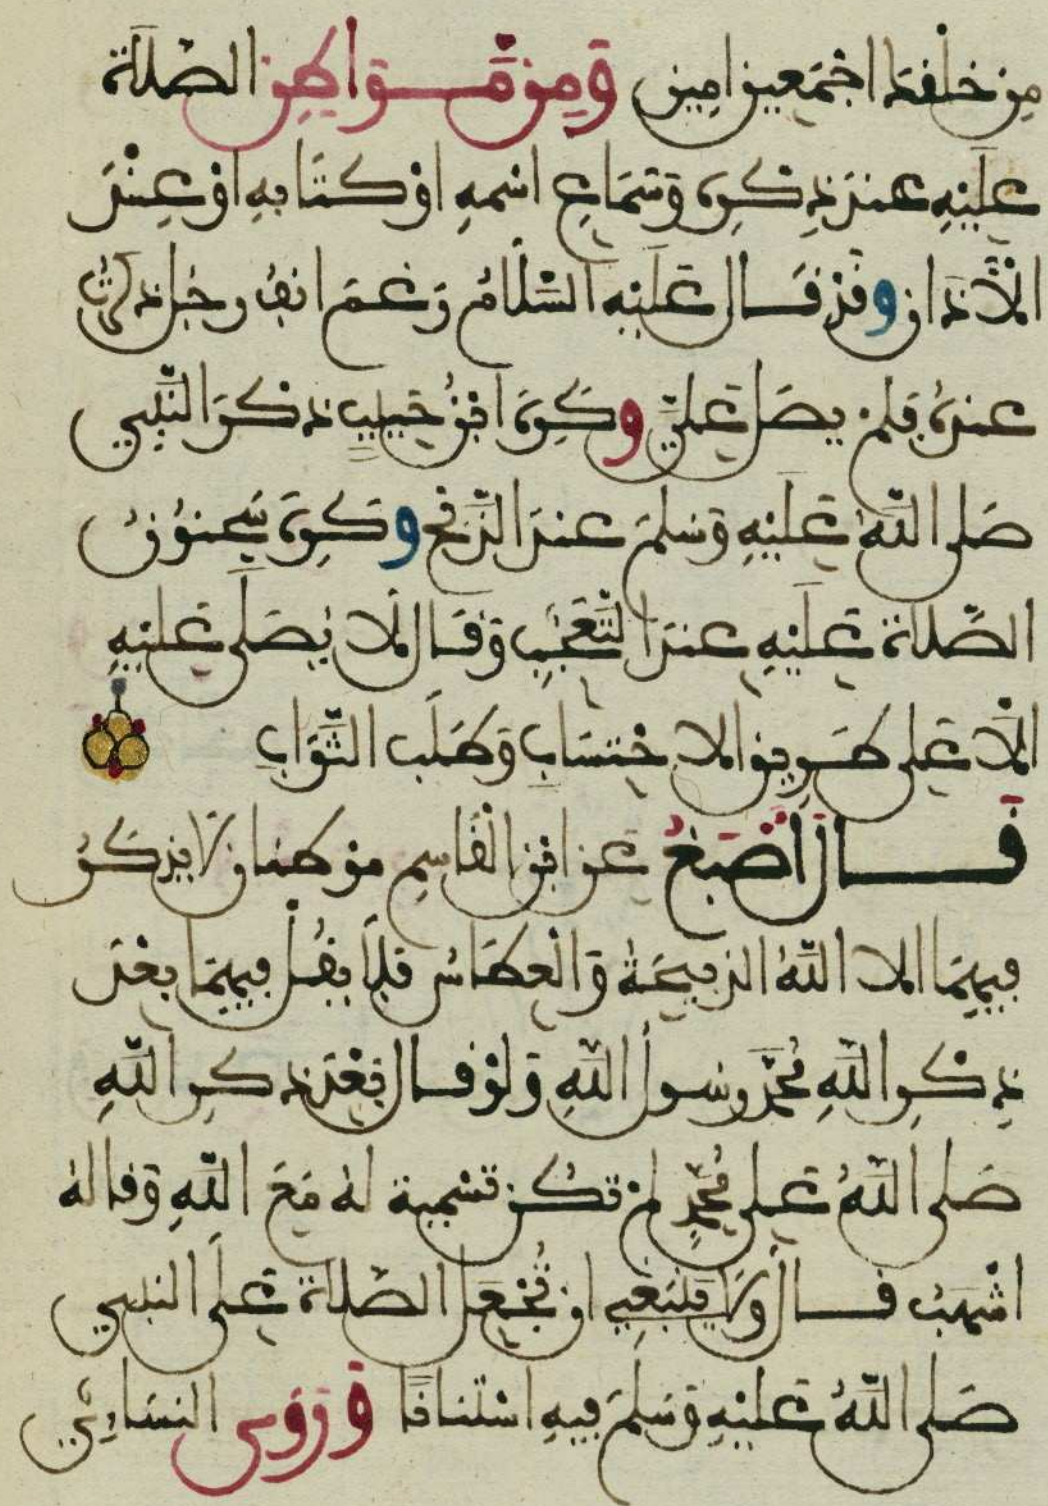 من خلقه اجمعين امين ومن مواطن الصلاة
عليه عند ذكره وسماع اسمه او كتابه او عند
الاذان وقد قال عليه السلام رغم انف رجل ذكرت
عنده فلم يصل علي وكره ابن حبيب ذكر النبي
صلى الله عليه وسلم عند الذبح وكره سحنون
الصلاة عليه عند التعجب وقال لا يصلى عليه
الا على طريق الاحتساب وطلب الثواب
قال اصبغ عن ابن القاسم موطنان لا يذكر
فيهما الا الله الذبيحة والعطاس فلا يقل فيهما بعد
ذكر الله محمد رسول الله ولو قال بعد ذكر الله
صلى الله على محمد لم تكن تسمية له مع الله وقاله
اشهب قال ولا ينبغي ان تجعل الصلاة على النبي
صلى الله عليه وسلم فيه استنانا وروى النسائي